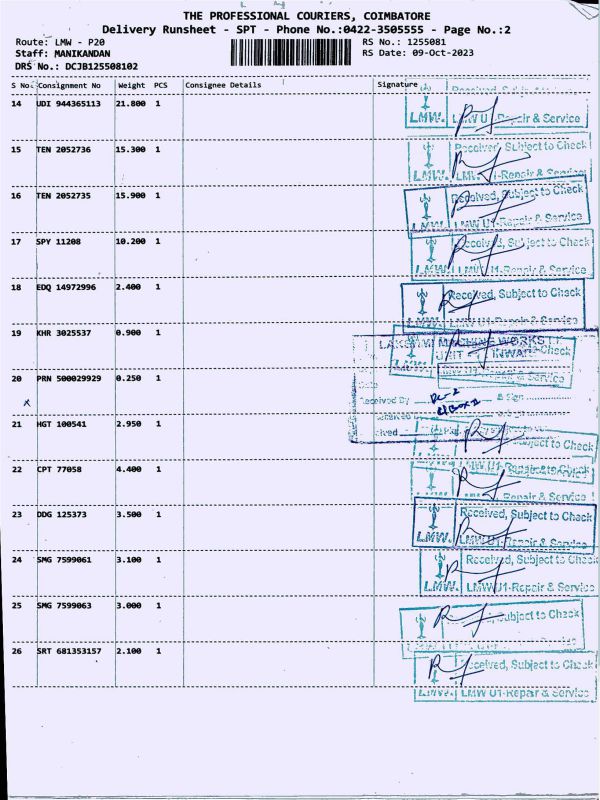 THE PROFESSIONAL COURIERS, COIMBATORE
Delivery Runsheet - SPT - Phone No.:0422-3505555 - Page No.:2
Route: LMW - P20 RS No.: 1255081
Staff: MANIKANDAN RS Date: 09-Oct-2023
DRS No.: DCJB125508102
S No Consignment No Weight PCS Consignee Details Signature
14 UDI 944365113 21.800 1
LMW. LMW U1-Repair & Service
15 TEN 2052736 15.300 1 Received, Subject to Check
LMW. LMW U1-Repair & Service
16 TEN 2052735 15.900 1 Received, Subject to Check
LMW. LMW U1-Repair & Service
17 SPY 11208 10.200 1 Received, Subject to Check
LMW. LMW U1-Repair & Service
18 EDQ 14972996 2.400 1 Received, Subject to Check
LMW. LMW U1-Repair & Service
19 KHR 3025537 0.900 1 MACHINE WORKS
UNIT
20 PRN 500029929 0.250 1
x Received By & Sign
21 HGT 100541 2.950 1
Subject to Check
22 CPT 77058 4.400 1 LMW U1-Repair & Service
Repair & Service
23 DDG 125373 3.500 1 Received, Subject to Check
LMW. LMW U1-Repair & Service
24 SMG 7599061 3.100 1 Received, Subject to Check
LMW. LMW U1-Repair & Service
25 SMG 7599063 3.000 1 Subject to Check
26 SRT 681353157 2.100 1 Received, Subject to Check
LMW. LMW U1-Repair & Service